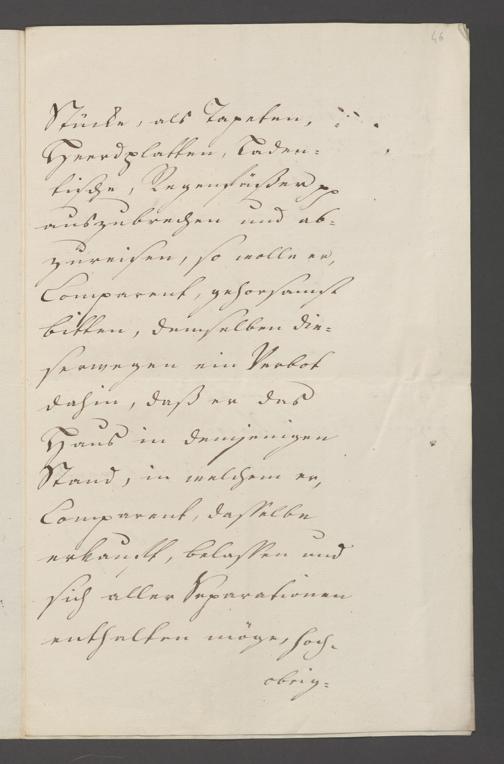 46
Stücke, als Tapeten,
Heerdplatten, Laden-
tische, Regenfäßer pp
auszubrechen und ab-
zureisen, so wolle er,
Comparent, gehorsamst
bitten, demselben die-
serwegen ein Verbot
dahin, daß er das
Haus in demjenigen
Stand, in welchem er,
Comparent, dasselbe
erkauft, belassen und
sich aller Separationen
enthalten möge, hoch-
obrig-